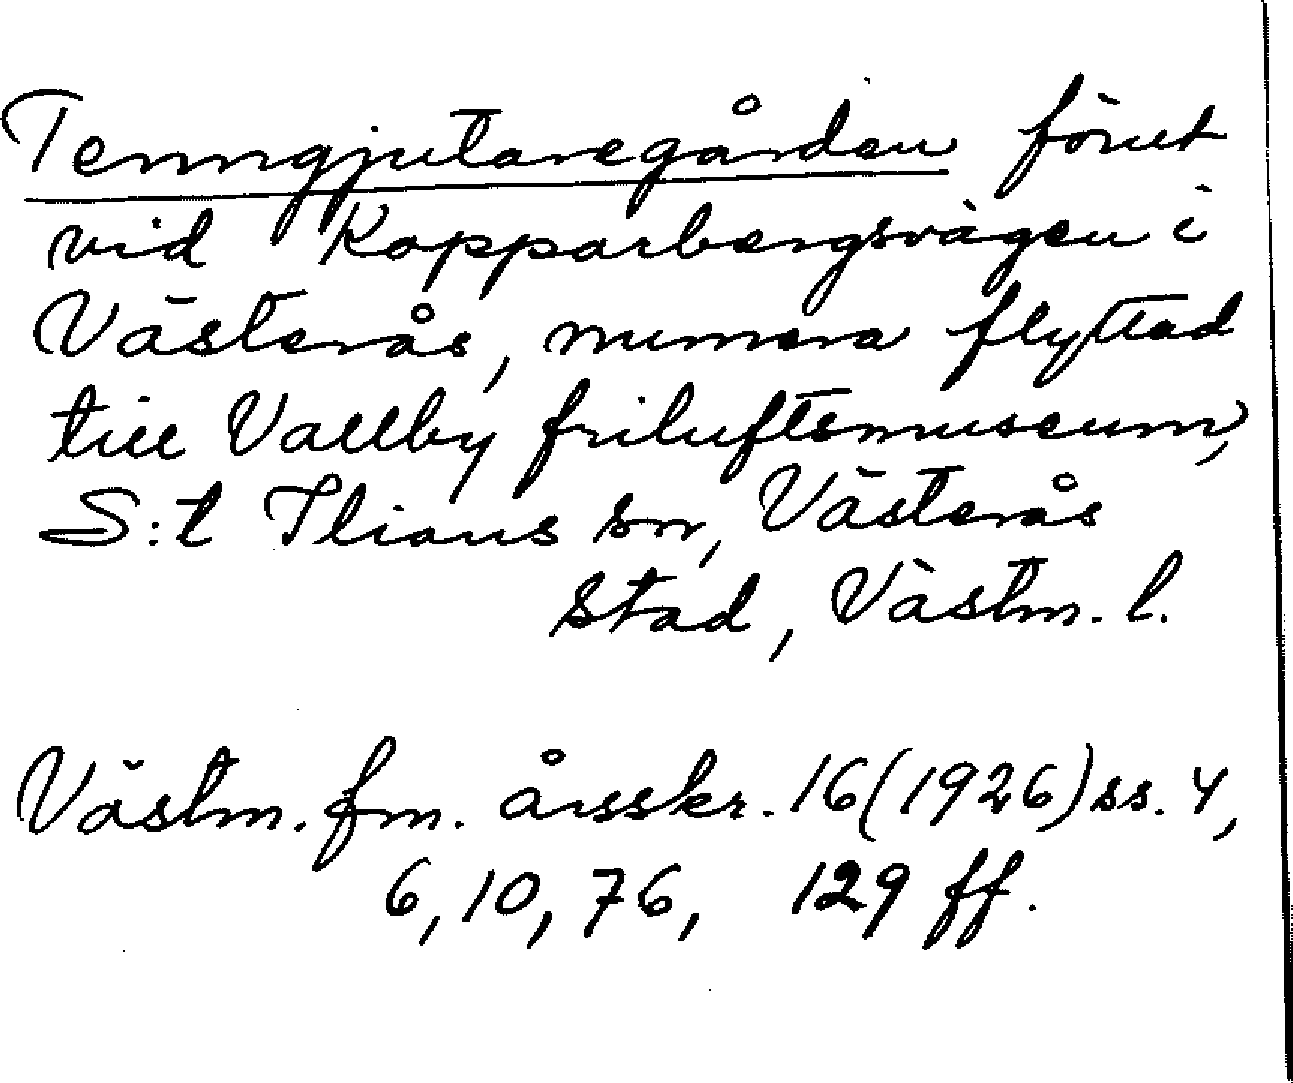 Tenngjutaregården förut
vid Kopparbergsvägen i
Västerås, numera flyttad
till Vallby friluftsmuseum,
S:t Ilians sn, Västerås
stad, Västm. l.
Västm. fm. årsskr. 16(1926) ss. 4,
6, 10, 76, 129 ff.